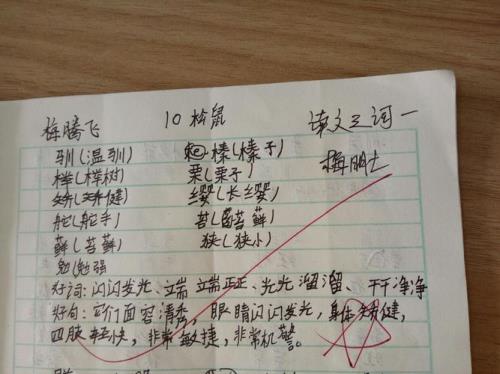 梅腾飞 10 松鼠 语文三词一
驯(温驯) 榛(榛子) 梅朋士
榉(榉树) 栗(栗子)
矫(矫健) 缨(长缨)
舵(舵手) 苔(苔藓)
藓(苔藓) 狭(狭小)
勉(勉强
好词:闪闪发光、立端 立端正正、光光溜溜、干干净净
好句:它们面容清秀,眼睛闪闪发光,身体矫健,
四肢轻快,非常敏捷,非常机警。